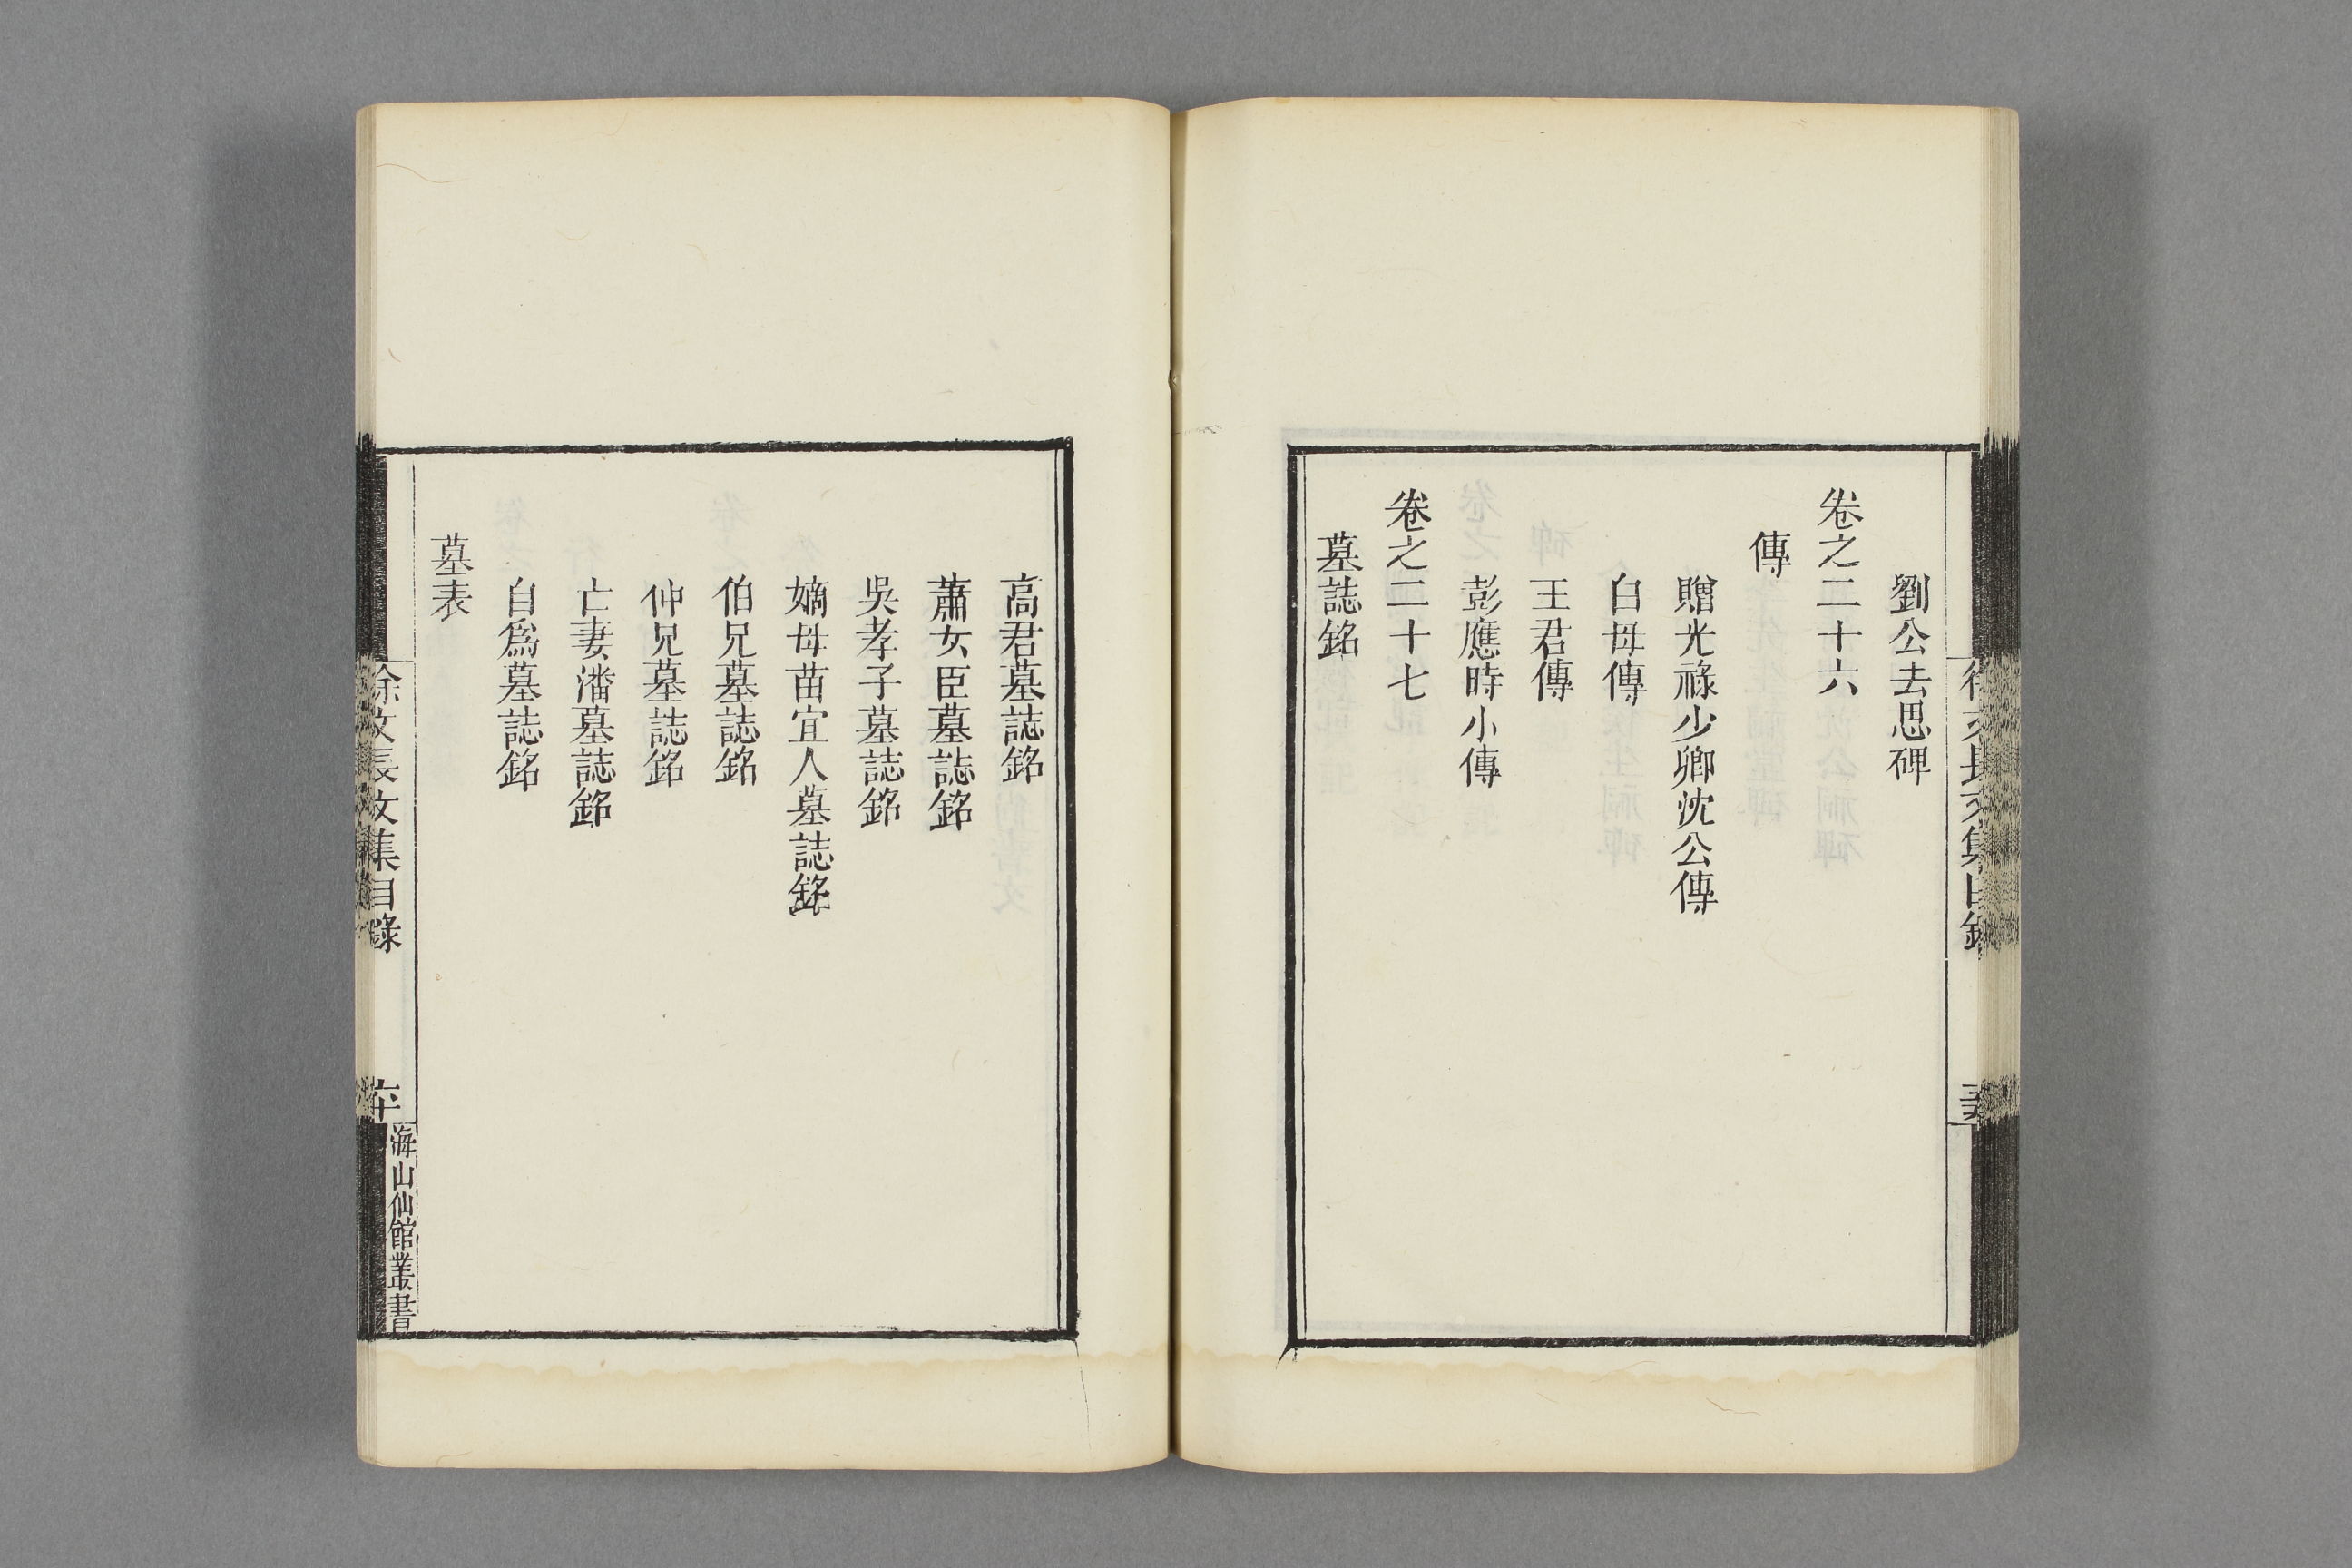 劉公去思碑
卷之二十六
傳
贈光祿少卿沈公傳
白母傳
王君傳
彭應時小傳
卷之二十七
墓誌銘
高君墓誌銘
蕭女臣墓誌銘
吳孝子墓誌銘
嫡母苗宜人墓誌銘
伯兄墓誌銘
仲兄墓誌銘
亡妻潘墓誌銘
自爲墓誌銘
墓表
徐文長文集目錄
六十
海山仙館叢書